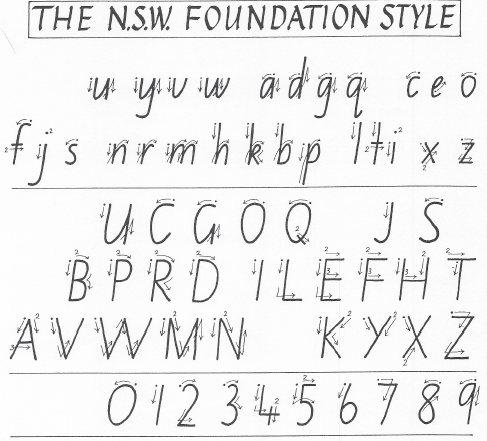 THE N.S.W. FOUNDATION STYLE
u y v w a d g q c e o
f j s n r m h k b p l t i x z
U C G O Q J S
B P R D I L E F H T
A V W M N K Y X Z
0 1 2 3 4 5 6 7 8 9